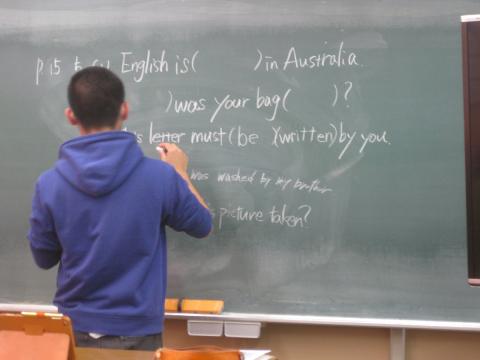 p.15 English is (        ) in Australia.
) was your bag (        ) ?
letter must (be )(written) by you.
was washed by my brother
picture taken?